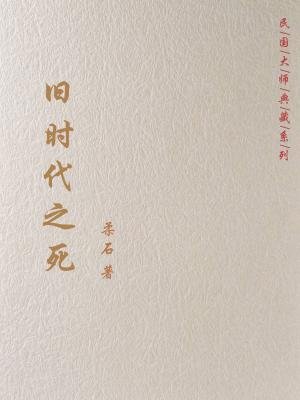 民|国|大|师|典|藏|系|列
旧时代之死
柔石 著